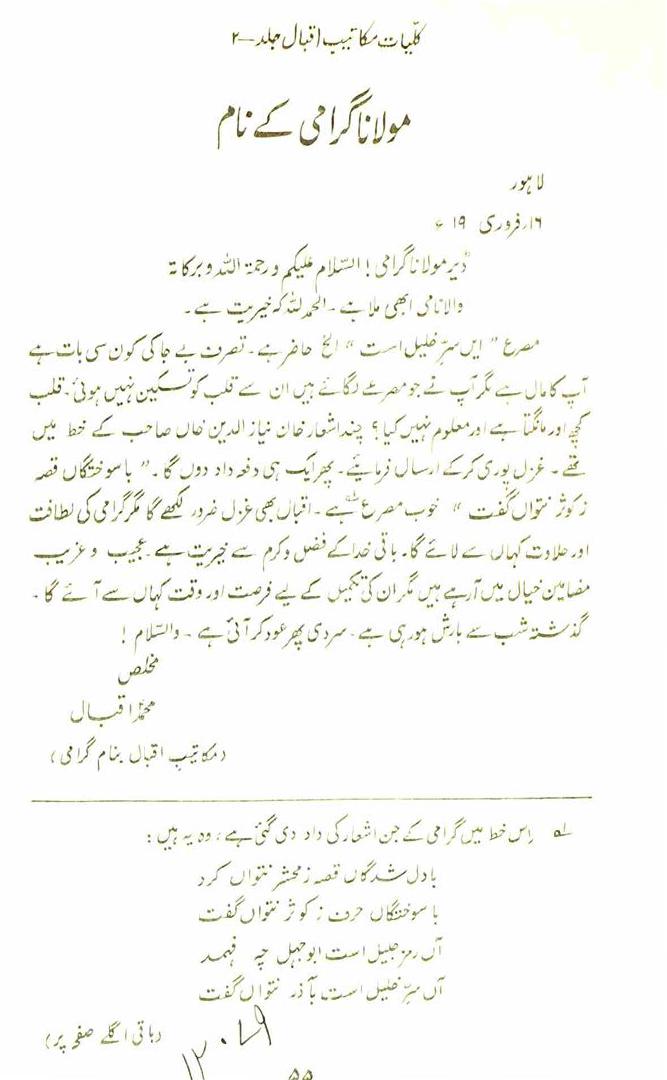 کلّیات مکاتیب اقبال جلد ـ ۲
مولانا گرامی کے نام
لاہور
۱۶؍ فروری ۱۹ ء
ڈیر مولانا گرامی ! السّلام علیکم و رحمۃ اللہ و برکاتہ
والا نامی ابھی ملا ہے ۔ الحمد للہ کہ خیریت ہے ۔
مصرع " ایں سرِّ خلیل است " الخ حاضر ہے ۔ تصرف بے جا کی کون سی بات ہے
آپ کا مال ہے مگر آپ نے جو مصرعے لگائے ہیں ان سے قلب کو تسکین نہیں ہوئی ۔ قلب
کچھ اور مانگتا ہے اور معلوم نہیں کیا ؟ چند اشعار خان نیاز الدین خاں صاحب کے خط میں
تھے ۔ غزل پوری کر کے ارسال فرمائیے ۔ پھر ایک ہی دفعہ داد دوں گا ۔ " با سوختگاں قصہ
ز کوثر نتواں گفت " خوب مصرع ہے ۔ اقبال بھی غزل ضرور لکھے گا مگر گرامی کی لطافت
اور حلاوت کہاں سے لائے گا ۔ باقی خدا کے فضل و کرم سے خیریت ہے ۔ عجیب و غریب
مضامین خیال میں آ رہے ہیں مگر ان کی تکمیل کے لیے فرصت اور وقت کہاں سے آئے گا ۔
گذشتہ شب سے بارش ہو رہی ہے ۔ سردی پھر عود کر آئی ہے ۔ والسّلام !
مخلص
محمدؐ اقبال
( مکاتیبِ اقبال بنام گرامی )
لہ اس خط میں گرامی کے جن اشعار کی داد دی گئی ہے ، وہ یہ ہیں :
با دل شدگاں قصہ ز محشر نتواں کرد
با سوختگاں حرف ز کوثر نتواں گفت
آں رمزِ جلیل است ابوجہل چہ فہمد
آں سرِّ خلیل است بآذر نتواں گفت
( باقی اگلے صفحہ پر )
۵۵